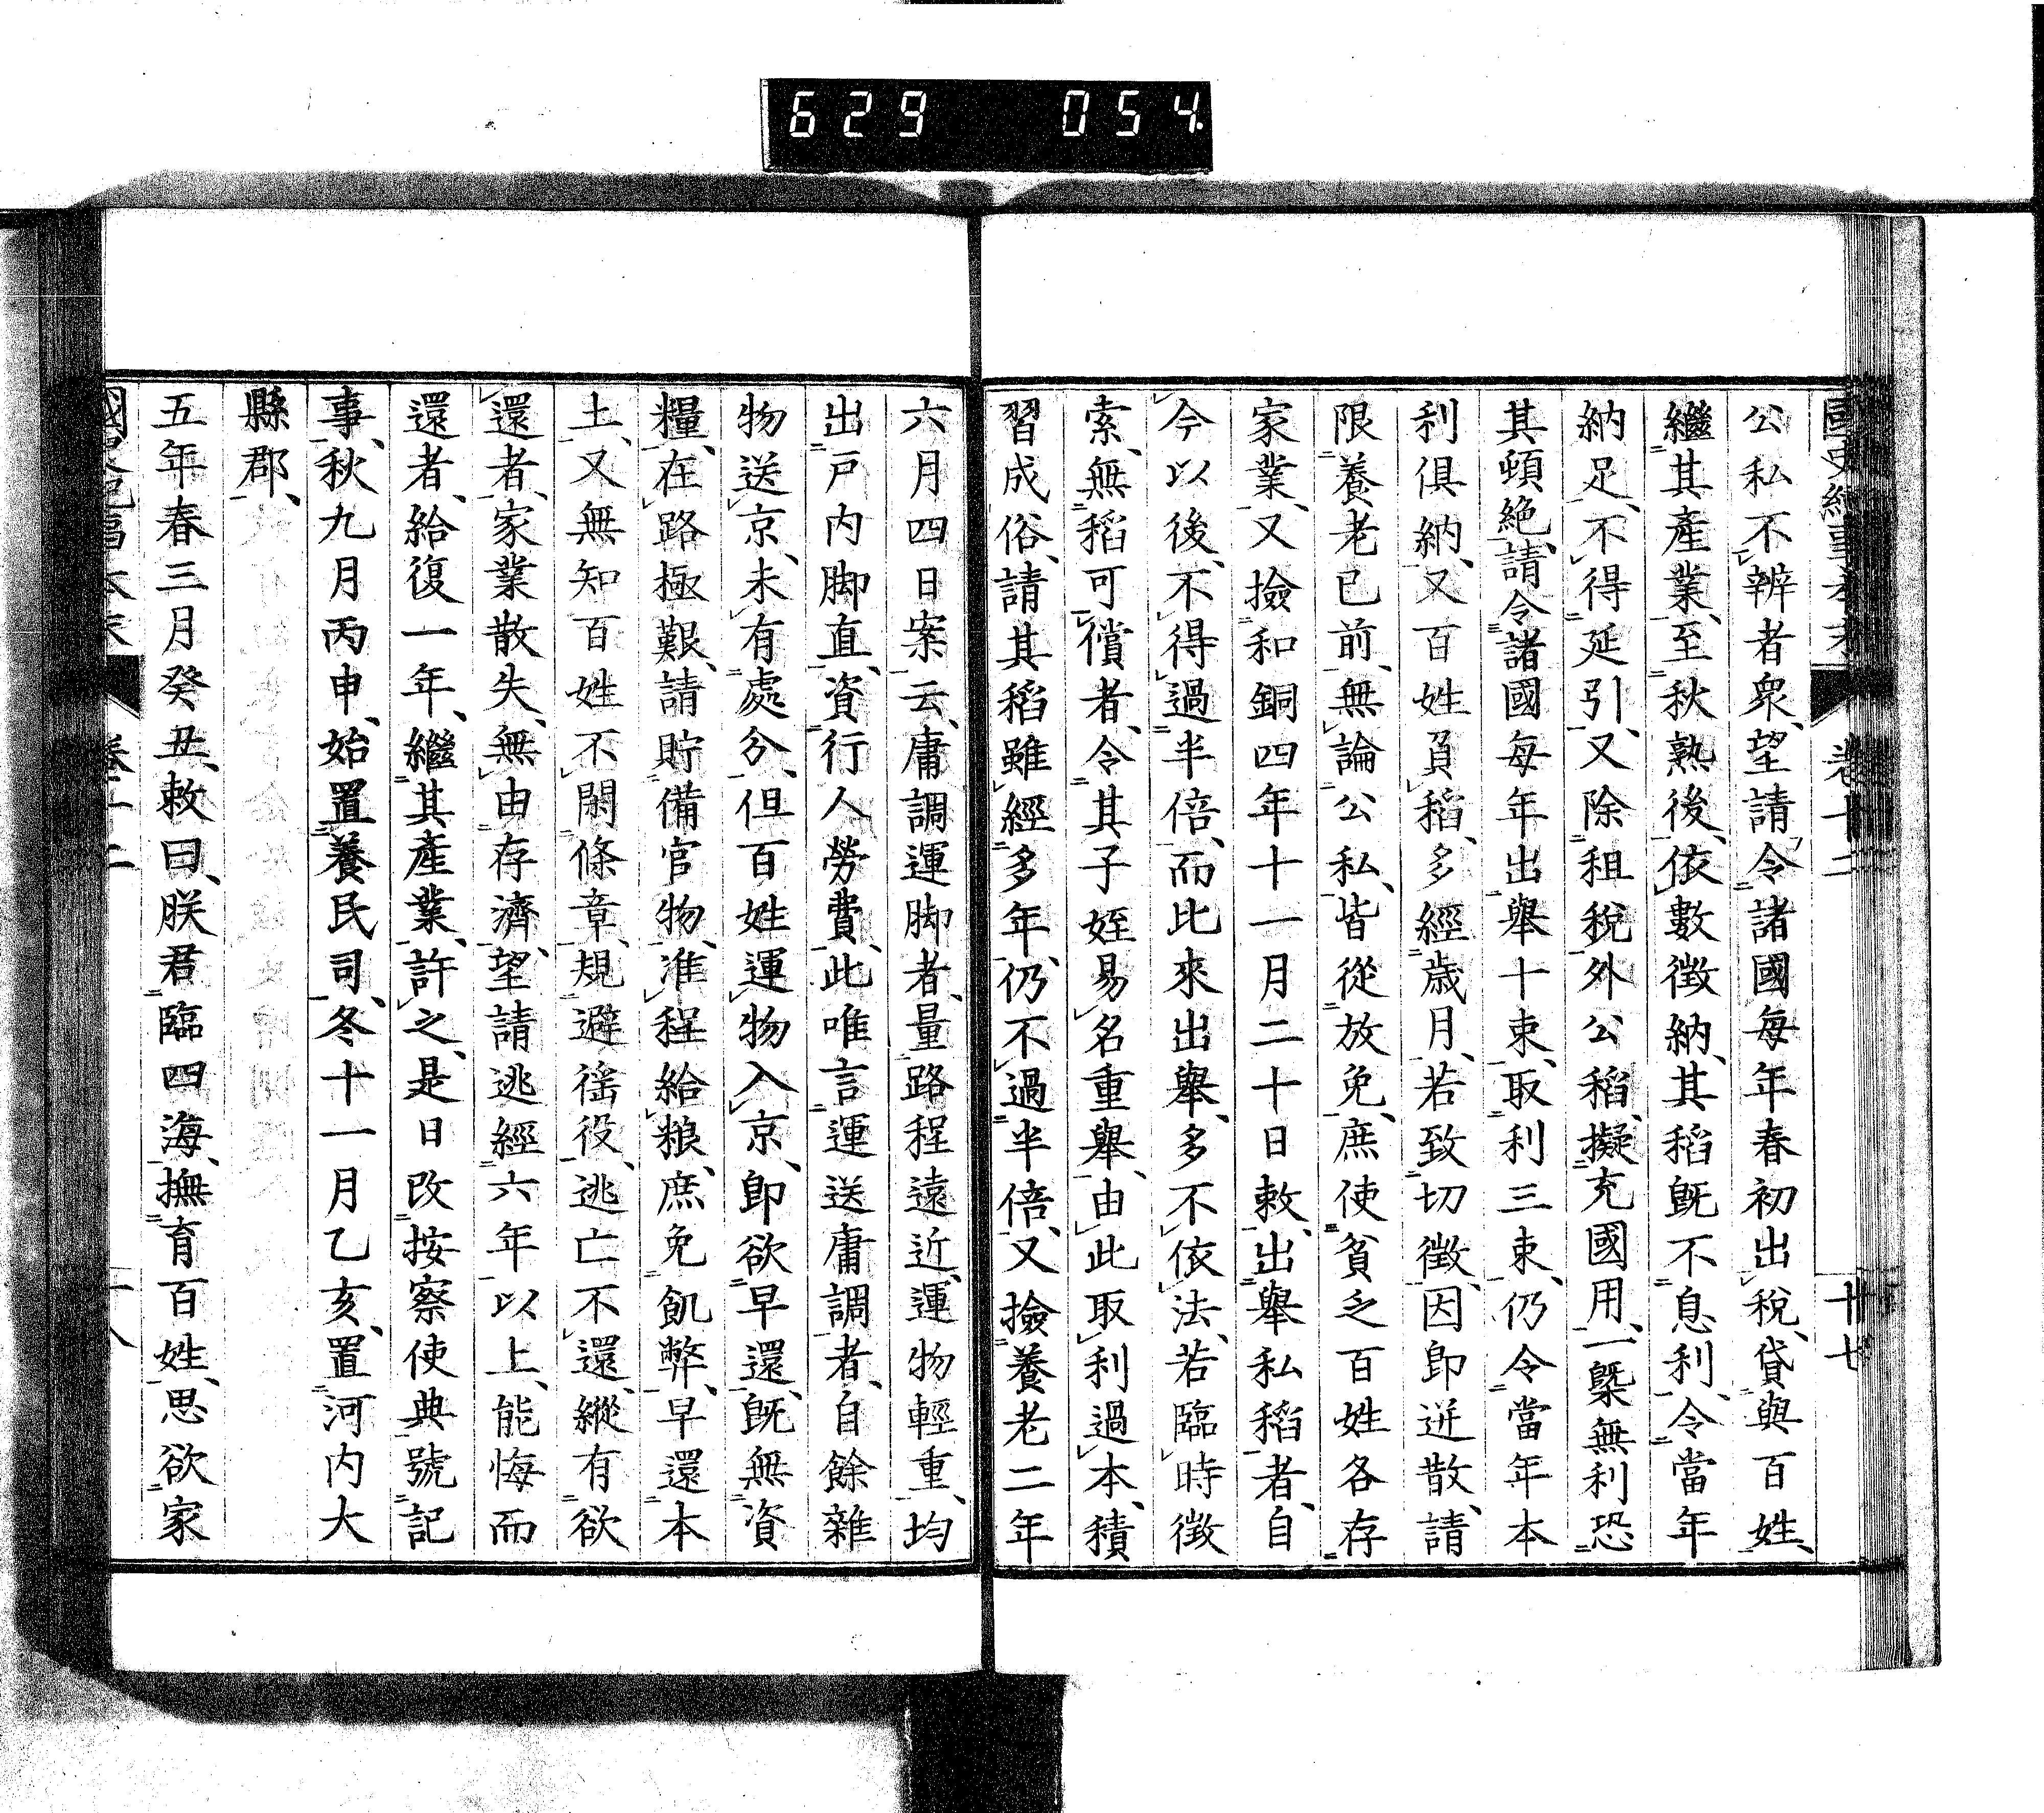 629 054
公私不辨者衆、望請令諸國每年春初出稅、貸與百姓、
繼其產業、至秋熟後、依數徵納、其稻既不息利、令當年
納足、不得延引、又除租稅外公稻、擬充國用、一槩無利恐
其頓絕、請令諸國每年出舉十束、取利三束、仍令當年本
利俱納、又百姓負稻、多經歲月、若致切徵、因卽迸散、請
限養老已前、無論公私、皆從放免、庶使貧乏百姓各存
家業、又撿和銅四年十一月二十日敕、出舉私稻者、自
今以後、不得過半倍、而比來出舉、多不依法、若臨時徵
索、無稻可償者、令其子姪易名重舉、由此取利過本、積
習成俗、請其稻雖經多年、仍不過半倍、又撿養老二年
六月四日案云、庸調運脚者、量路程遠近、運物輕重、均
出戸内脚直、資行人勞費、此唯言運送庸調者、自餘雜
物送京、未有處分、但百姓運物入京、卽欲早還、既無資
糧、在路極艱、請貯備官物、准程給粮、庶免飢弊、早還本
土、又無知百姓不閑條章、規避徭役、逃亡不還、縱有欲
還者、家業散失、無由存濟、望請逃經六年以上、能悔而
還者、給復一年、繼其產業、許之、是日改按察使典號記
事、秋九月丙申、始置養民司、冬十一月乙亥、置河内大
縣郡、
五年春三月癸丑、敕曰、朕君臨四海、撫育百姓、思欲家
卷十二
廿七